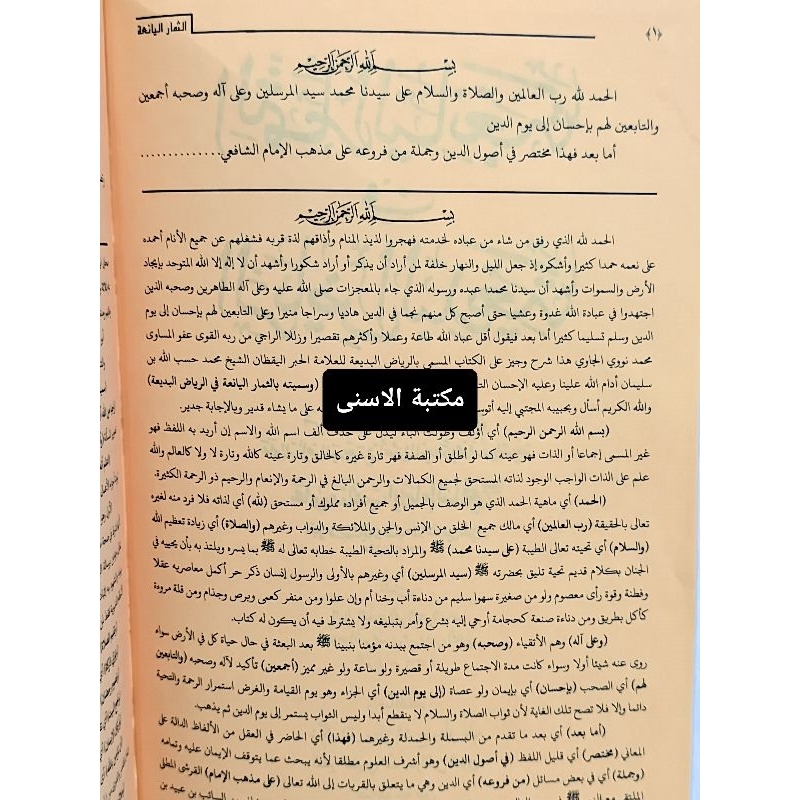 الثمار اليانعة
﴿١﴾
بسم الله الرحمن الرحيم
الحمد لله رب العالمين والصلاة والسلام على سيدنا محمد سيد المرسلين وعلى آله وصحبه أجمعين
والتابعين لهم بإحسان إلى يوم الدين
أما بعد فهذا مختصر في أصول الدين وجملة من فروعه على مذهب الإمام الشافعي..............
بسم الله الرحمن الرحيم
الحمد لله الذي رفق من شاء من عباده لخدمته فهجروا لذيذ المنام وأذاقهم لذة قربه فشغلهم عن جميع الأنام أحمده
على نعمه حمدا كثيرا وأشكره إذ جعل الليل والنهار خلفة لمن أراد أن يذكر أو أراد شكورا وأشهد أن لا إله إلا الله المتوحد بإيجاد
الأرض والسموات وأشهد أن سيدنا محمدا عبده ورسوله الذي جاء بالمعجزات صلى الله عليه وعلى آله الطاهرين وصحبه الذين
اجتهدوا في عبادة الله غدوة وعشيا حتى أصبح كل منهم نجما في الدين هاديا وسراجا منيرا وعلى التابعين لهم إلى يوم
الدين وسلم تسليما كثيرا أما بعد فيقول أقل عباد الله طاعة وعملا وأكثرهم تقصيرا وزللا الراجي من ربه القوي عفو المساوى
محمد نووي الجاوي هذا شرح وجيز على الكتاب المسمى بالرياض البديعة للعلامة الحبر اليقظان الشيخ محمد حسب الله بن
سليمان أدام الله علينا وعليه الإحسان (وسميته بالثمار اليانعة في الرياض البديعة)
والله الكريم أسأل وبحبيبه المجتبى إليه على ما يشاء قدير وبالإجابة جدير.
مكتبة الاسنى
(بسم الله الرحمن الرحيم) أي أؤلف وطولت الباء ليدل على حذف ألف اسم الله والاسم إن أريد به اللفظ فهو
غير المسمى إجماعا أو الذات فهو عينه كما لو أطلق أو الصفة فهو تارة غيره كالخالق وتارة عينه كالله وتارة لا ولا كالعالم والله
علم على الذات الواجب الوجود لذاته المستحق لجميع الكمالات والرحمن البالغ في الرحمة والإنعام والرحيم ذو الرحمة الكثيرة.
(الحمد) أي ماهية الحمد الذي هو الوصف بالجميل أو جميع أفراده مملوك أو مستحق (لله) أي لذاته فلا فرد منه لغيره
تعالى بالحقيقة (رب العالمين) أي مالك جميع الخلق من الإنس والجن والملائكة والدواب وغيرهم (والصلاة) أي زيادة تعظيم الله
(والسلام) أي تحيته تعالى الطيبة (على سيدنا محمد) ﷺ والمراد بالتحية الطيبة خطابه تعالى له ﷺ بما يسره ويلتذ به بأن يحييه في
الجنان بكلام قديم تحية تليق بحضرته ﷺ (سيد المرسلين) أي وغيرهم بالأولى والرسول إنسان ذكر حر أكمل معاصريه عقلا
وفطنة وقوة رأى معصوم ولو من صغيرة سهوا سليم من دناءة أب وخنا أم وإن علوا ومن منفر كعمى وبرص وجذام ومن قلة مروءة
كأكل بطريق ومن دناءة صنعة كحجامة أوحي إليه بشرع وأمر بتبليغه ولا يشترط فيه أن يكون له كتاب.
(وعلى آله) وهم الأتقياء (وصحبه) وهو من اجتمع ببدنه مؤمنا بنبينا ﷺ بعد البعثة في حال حياة كل في الأرض سواء
روى عنه شيئا أولا وسواء كانت مدة الاجتماع طويلة أو قصيرة ولو ساعة ولو غير مميز (أجمعين) تأكيد لآله وصحبه (والتابعين
لهم) أي الصحب (بإحسان) أي بإيمان ولو عصاة (إلى يوم الدين) أي الجزاء وهو يوم القيامة والغرض استمرار الرحمة والتحية
دائما وإلا فلا تصح تلك الغاية لأن ثواب الصلاة والسلام لا ينقطع أبدا وليس الثواب يستمر إلى يوم الدين ثم يذهب.
(أما بعد) أي بعد ما تقدم من البسملة والحمدلة وغيرهما (فهذا) أي الحاضر في العقل من الألفاظ الدالة على
المعاني (مختصر) أي قليل اللفظ (في أصول الدين) وهو أشرف العلوم مطلقا لأنه يبحث عما يتوقف الإيمان عليه وتمامه
(وجملة) أي في بعض مسائل (من فروعه) أي الدين وهي ما يتعلق بالقربات إلى الله تعالى (على مذهب الإمام) القرشي المطلبي